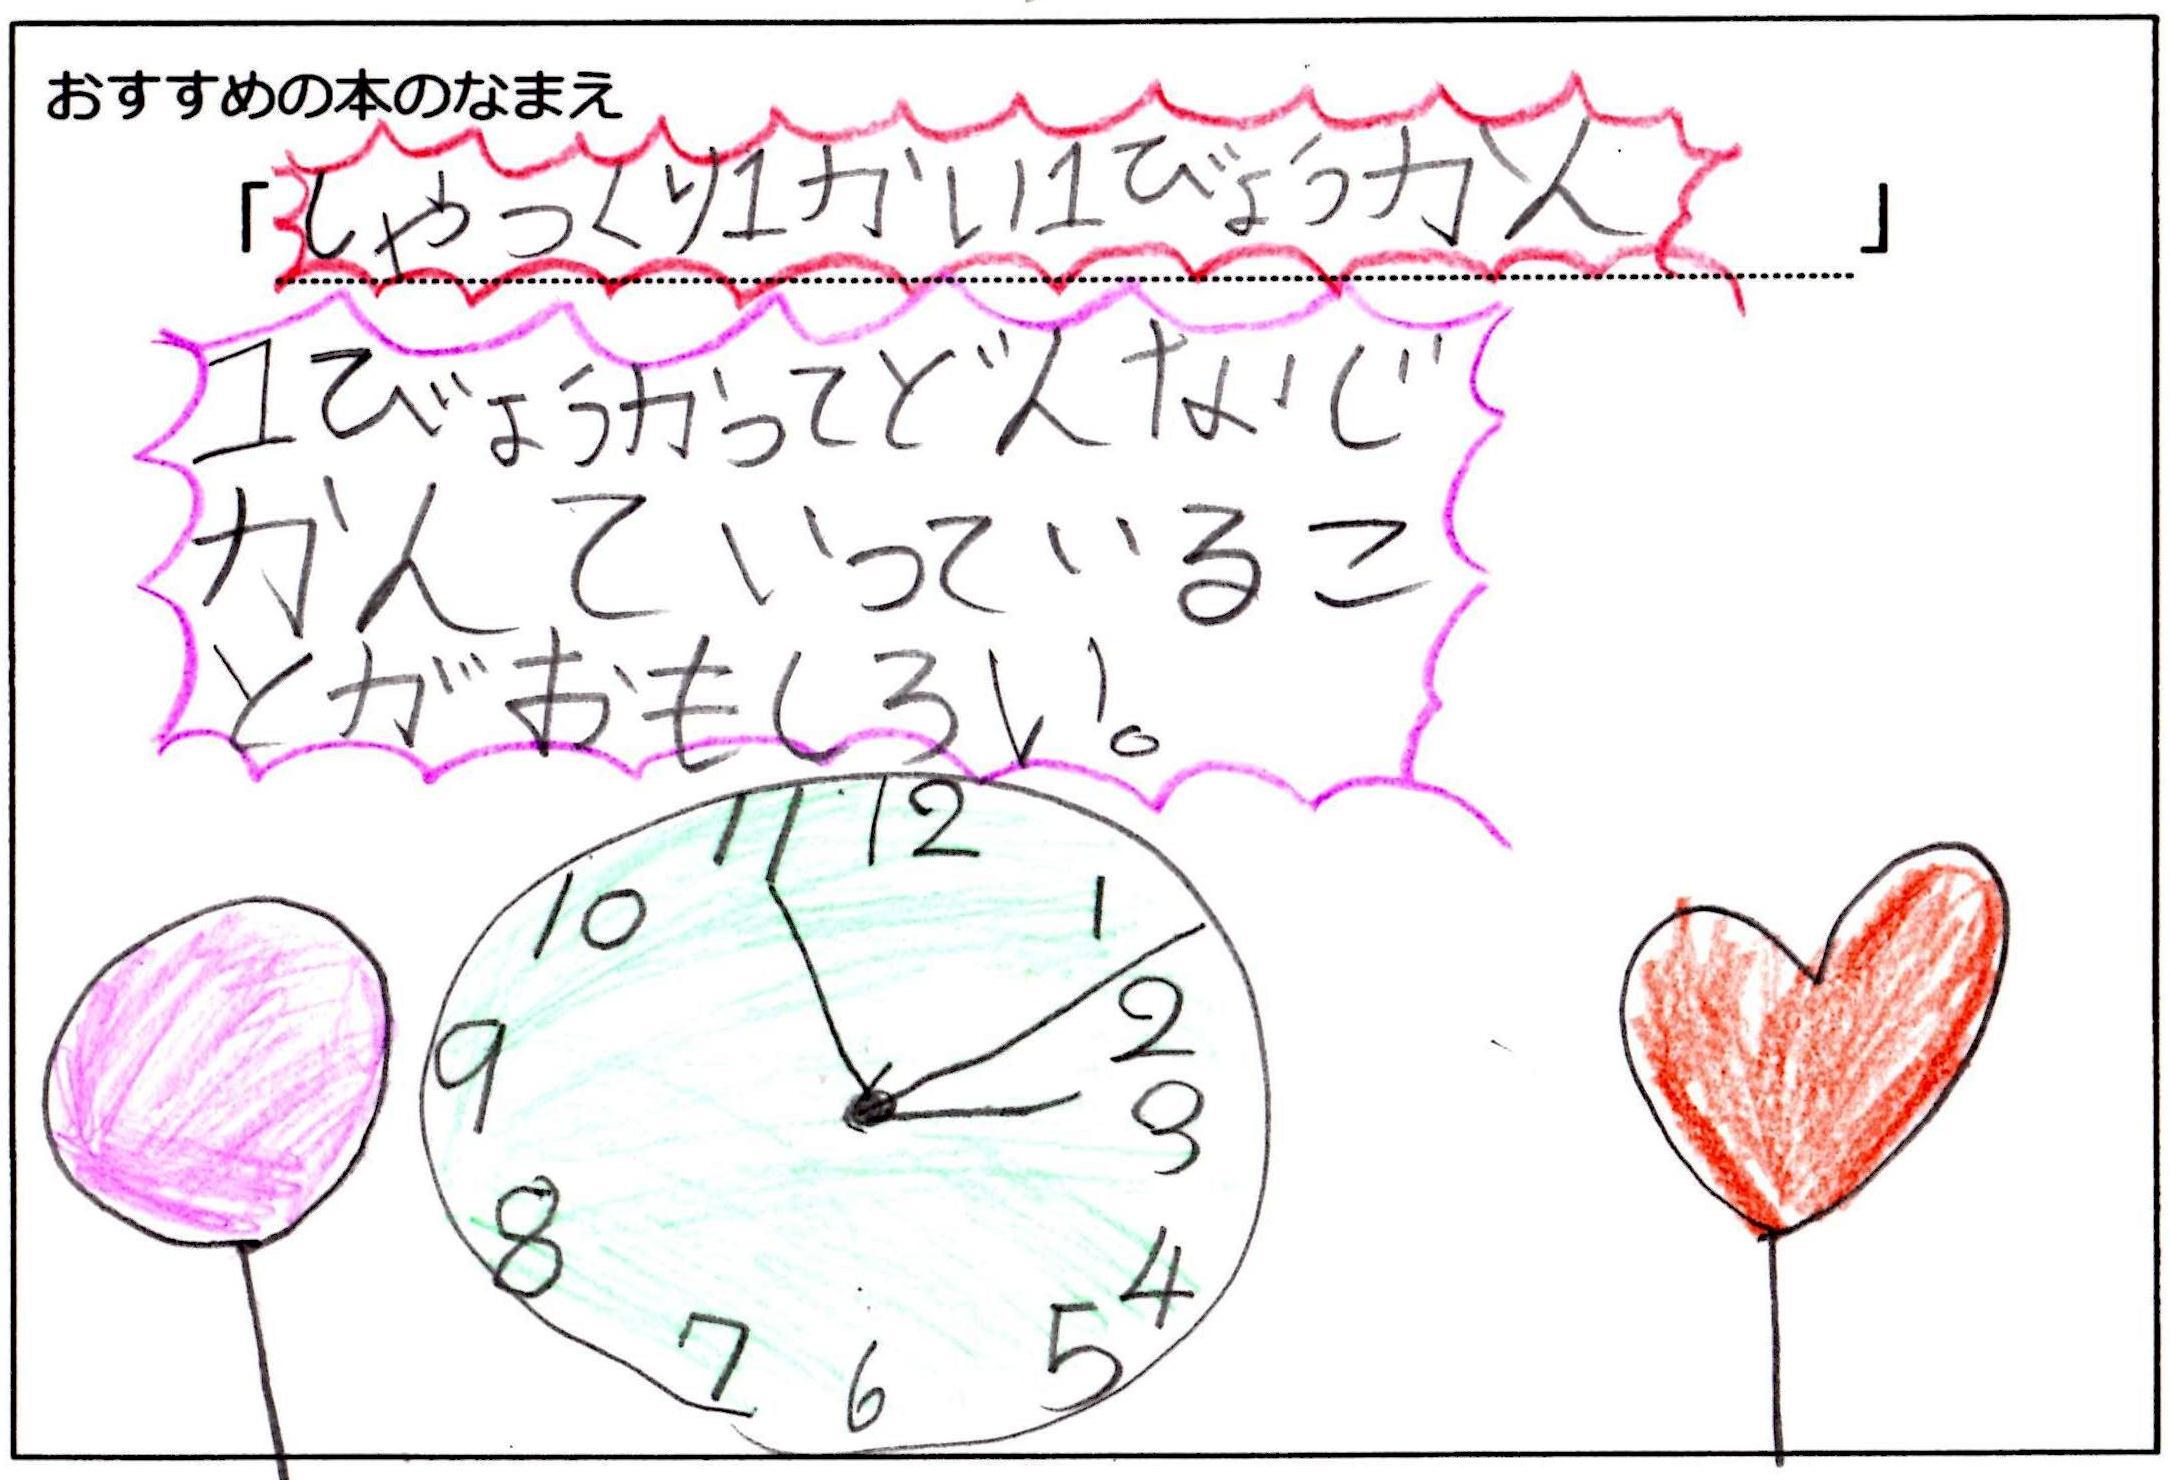 おすすめの本のなまえ
「しゃっくり1かい1びょうかん」
1びょうかってどんなじ
かんていっているこ
とがおもしろい。
11 12
10 1
2
9 3
8 4
7 6 5